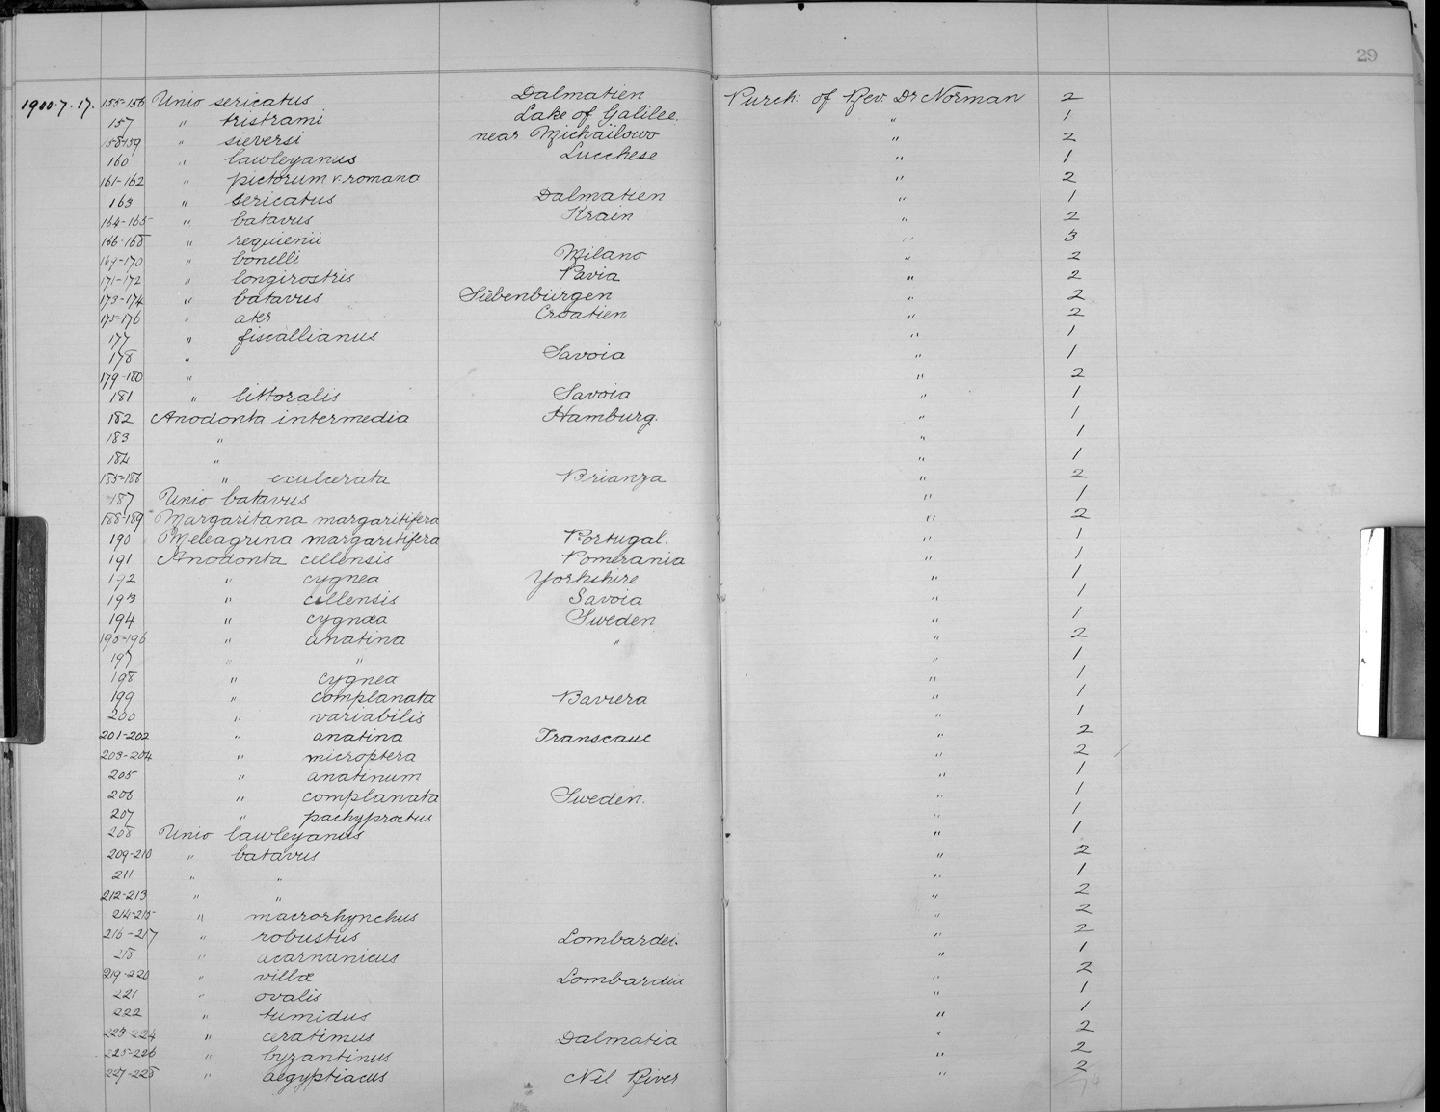 29
1900.7.17. 155-156 Unio sericatus Dalmatien Purch. of Rev Dr Norman 2
157 " tristrami Lake of Galilee. " 1
158-159 " sieversi near Michailowo " 2
160 " lawleyanus Lucchese " 1
161-162 " pictorum v. romana " 2
163 " sericatus Dalmatien " 1
164-165 " batavus Krain " 2
166-168 " requienii " 3
169-170 " bonelli Milano " 2
171-172 " longirostris Pavia " 2
173-174 " batavus Siebenbürgen " 2
175-176 " ater Croatien " 2
177 " fiscallianus " 1
178 " Savoia " 1
179-180 " " 2
181 " littoralis Savoia " 1
182 Anodonta intermedia Hamburg. " 1
183 " " 1
184 " " 1
185-186 " exulcerata Brianza " 2
187 Unio batavus " 1
188-189 Margaritana margaritifera " 2
190 Meleagrina margaritifera Portugal. " 1
191 Anodonta cellensis Pomerania " 1
192 " cygnea Yorkshire " 1
193 " cellensis Savoia " 1
194 " cygnea Sweden " 1
195-196 " anatina " " 2
197 " " " 1
198 " cygnea " 1
199 " complanata Baviera " 1
200 " variabilis " 1
201-202 " anatina Transcauc " 2
203-204 " microptera " 2
205 " anatinum " 1
206 " complanata Sweden. " 1
207 " " 1
208 Unio lawleyanus " 1
209-210 " batavus " 2
211 " " " 1
212-213 " " " 2
214-215 " macrorhynchus " 2
216-217 " robustus Lombardei. " 2
218 " acarnanicus " 1
219-220 " villæ " 2
221 " ovalis " 1
222 " tumidus " 1
223-224 " ceratimus Dalmatia " 2
225-226 " byzantinus " 2
227-228 " aegyptiacus Nil River " 2